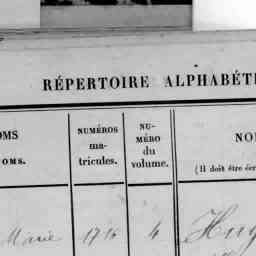 RÉPERTOIRE ALPHABÉT
OMS
OMS.
NUMÉROS
ma-
tricules.
NU-
MÉRO
du
volume.
NO
(Il doit être écr
Marie 1716 4 Hug